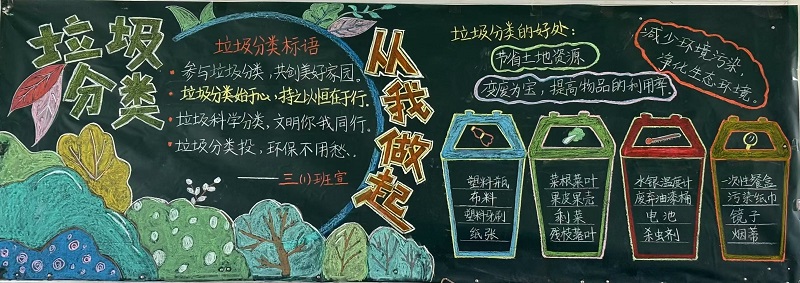 垃圾
分类
垃圾分类标语
参与垃圾分类，共创美好家园。
垃圾分类始于心，持之以恒在于行。
垃圾科学分类，文明你我同行。
垃圾分类投，环保不用愁。
——三(1)班宣
从我做起
垃圾分类的好处：
节省土地资源
变废为宝，提高物品的利用率
减少环境污染，
净化生态环境。
塑料瓶
布料
塑料包刷
纸张
菜根菜叶
果皮果壳
剩菜
残枝落叶
水银温度计
废弃油漆桶
电池
杀虫剂
一次性餐盒
污染纸巾
镜子
烟蒂